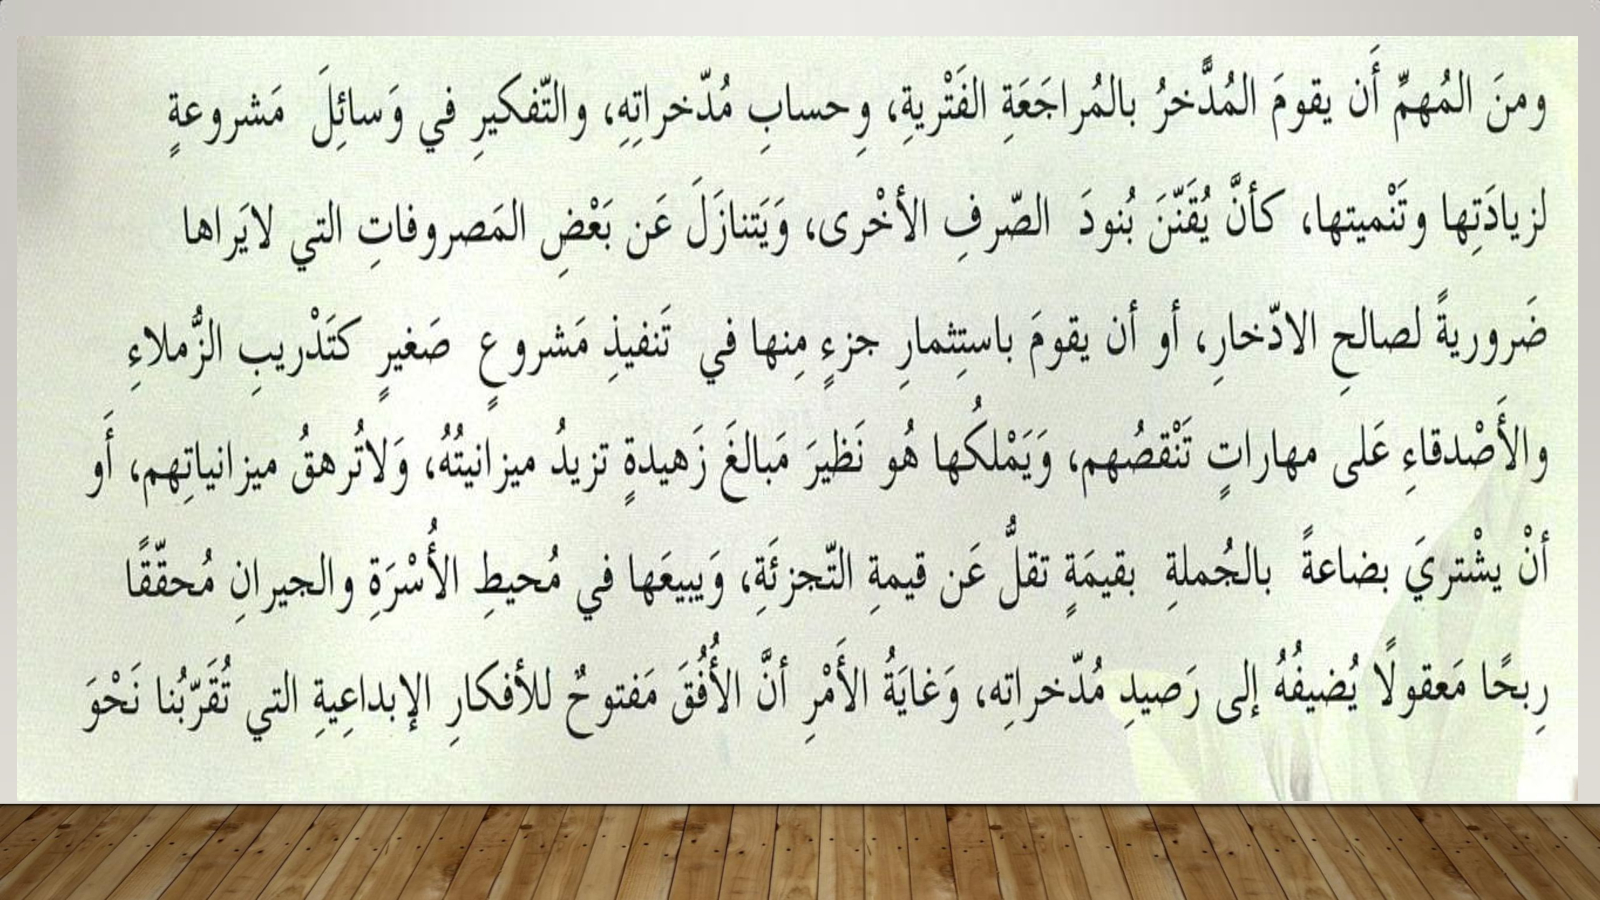 ومنَ المُهمِّ أَن يقومَ المُدَّخرُ بالمُراجَعَةِ الفَتْريةِ، وحسابِ مُدّخراتِهِ، والتّفكيرِ في وَسائِلَ مَشروعةٍ
لزيادَتِها وتَنْميتها، كأنَّ يُقَنّنَ بُنودَ الصّرفِ الأخْرى، وَيَتنازَلَ عَن بَعْضِ المَصروفاتِ التي لايَراها
ضَروريةً لصالحِ الادّخارِ، أو أن يقومَ باستِثمارِ جزءٍ مِنها في تَنفيذِ مَشروعٍ صَغيرٍ كتَدْريبِ الزُّملاءِ
والأَصْدقاءِ عَلى مهاراتٍ تَنْقصُهم، وَيَمْلكُها هُو نَظيرَ مَبالغَ زَهيدةٍ تزيدُ ميزانيتُهُ، وَلاتُرهقُ ميزانياتِهم، أَو
أنْ يشْتريَ بضاعةً بالجُملةِ بقيمَةٍ تقلُّ عَن قيمةِ التّجزئَةِ، وَيبيعَها في مُحيطِ الأُسْرَةِ والجيرانِ مُحقّقًا
رِبحًا مَعقولًا يُضيفُهُ إلى رَصيدِ مُدّخراتِه، وَغايَةُ الأَمْرِ أنَّ الأُفُقَ مَفتوحٌ للأفكارِ الإبداعِيةِ التي تُقَرّبُنا نَحْوَ